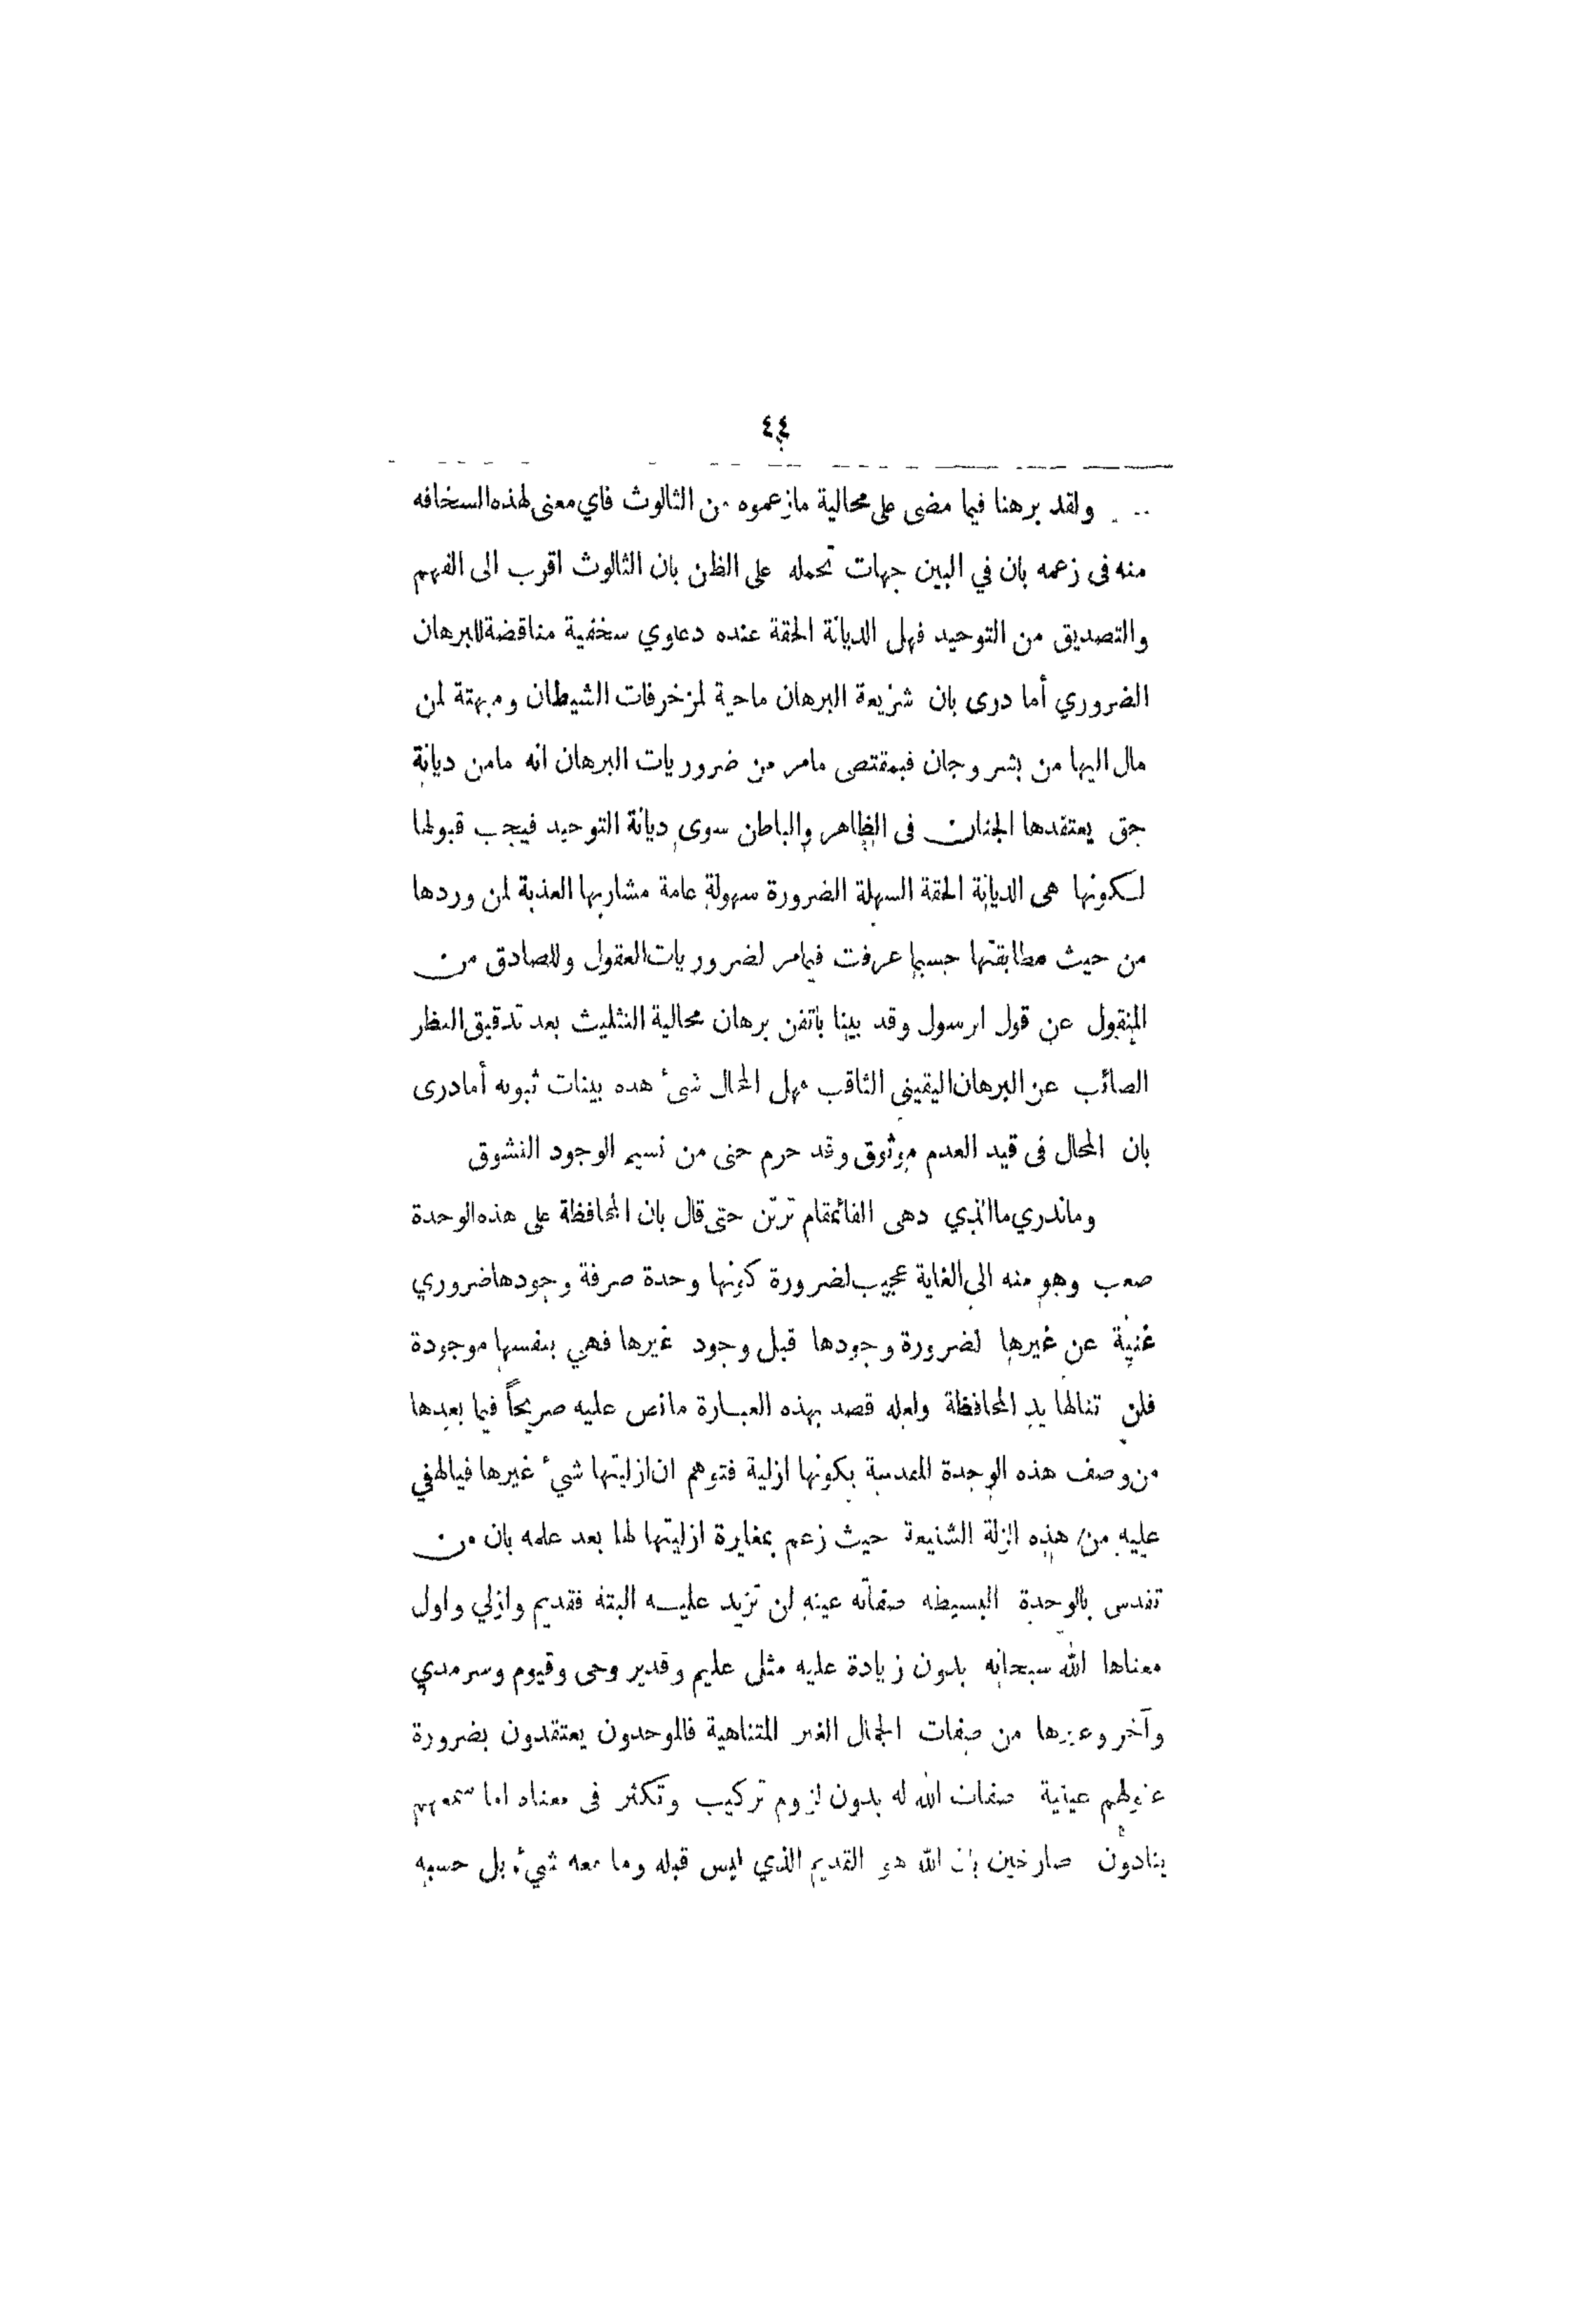 ٤٤
ولقد برهنا فيما مضى على محالية مازعموه من الثالوث فاي معنى لهذه السخافه
منه فى زعمه بان في البين جهات تحمله على الظن بان الثالوث اقرب الى الفهم
والتصديق من التوحيد فهل الديانة الحقة عنده دعاوي سخفية مناقضة للبرهان
الضروري أما درى بان شريعة البرهان ماحية لمزخرفات الشيطان ومبهتة لمن
مال اليها من بشر وجان فبمقتضى مامر من ضروريات البرهان انه مامن ديانة
حق يعتقدها الجنان فى الظاهر والباطن سوى ديانة التوحيد فيجب قبولها
لكونها هى الديانة الحقة السهلة الضرورة سهولة عامة مشاربها العذبة لمن وردها
من حيث مطابقتها حسبما عرفت فيمامر لضروريات العقول وللصادق من
المنقول عن قول الرسول وقد بينا باتقن برهان محالية التثليث بعد تدقيق النظر
الصائب عن البرهان اليقيني الثاقب فهل المحال شئ هذه بينات ثبوته أمادرى
بان المحال فى قيد العدم موثوق وقد حرم حتى من نسيم الوجود النشوق
وماندري ماالذي دهى القائمقام ترتن حتى قال بان المحافظة على هذه الوحدة
صعب وهو منه الى الغاية عجيب لضرورة كونها وحدة صرفة وجودها ضروري
غنية عن غيرها لضرورة وجودها قبل وجود غيرها فهي بنفسها موجودة
فلن تنالها يد المحافظة ولعله قصد بهذه العبارة مانص عليه صريحاً فيما بعدها
من وصف هذه الوحدة المقدسة بكونها ازلية فتوهم ان ازليتها شيء غيرها فيالهفي
عليه من هذه الزلة الشنيعة حيث زعم بمغايرة ازليتها لها بعد علمه بان من
تقدس بالوحدة البسيطه صفاته عينه لن تزيد عليه البتة فقديم وازلي واول
معناها الله سبحانه بدون زيادة عليه مثل عليم وقدير وحى وقيوم وسرمدي
وآخر وغيرها من صفات الجمال الغير المتناهية فالموحدون يعتقدون بضرورة
عقولهم عينية صفات الله له بدون لزوم تركيب وتكثر فى معناه اما سمعهم
ينادون صارخين بان الله هو القديم الذي ليس قبله وما معه شيء بل حسبه